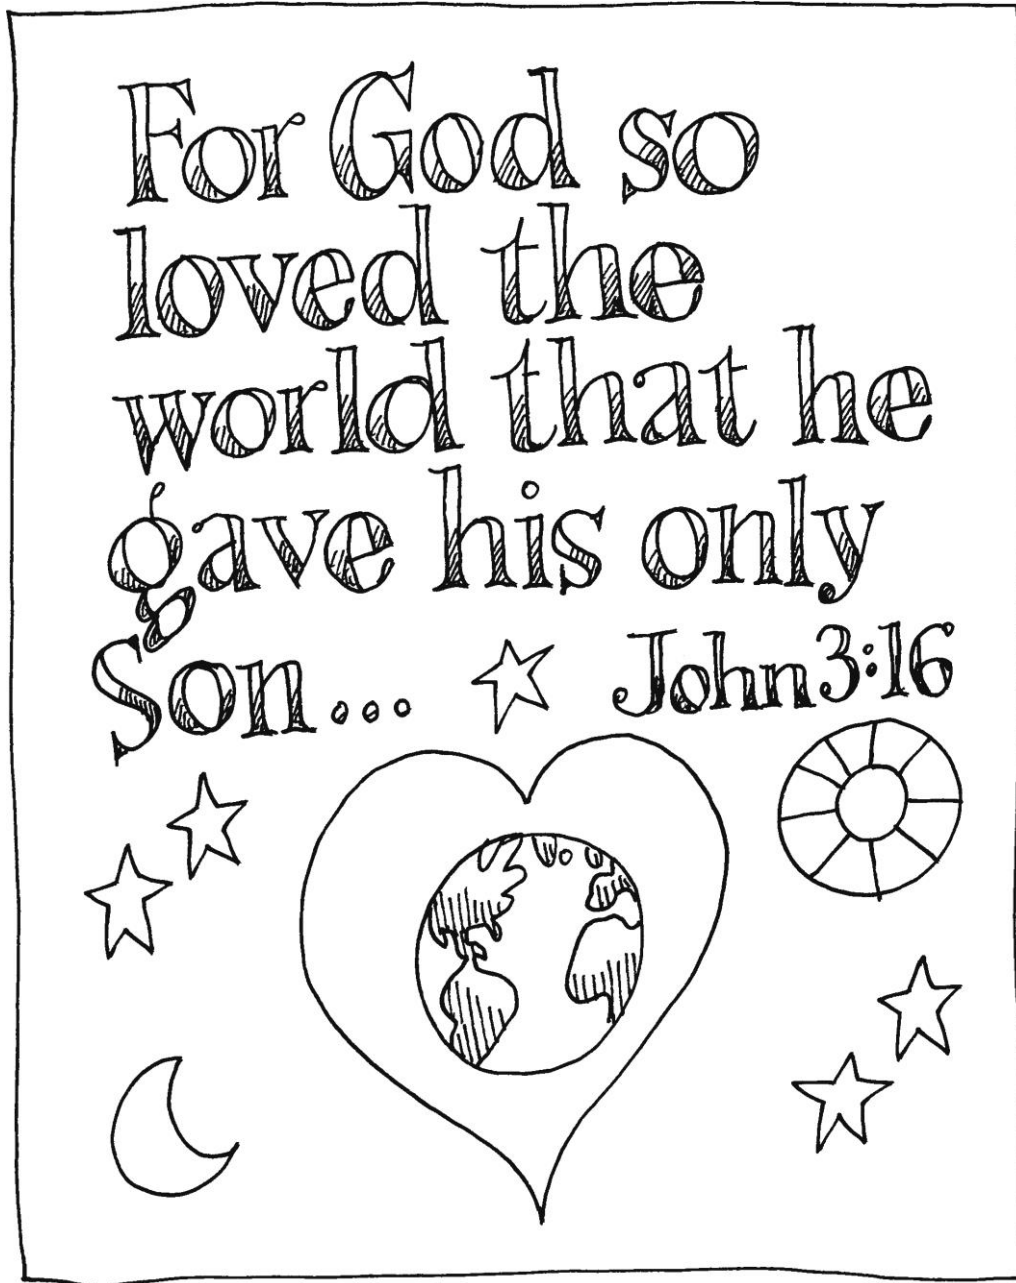 For God so
loved the
world that he
gave his only
Son... John 3:16